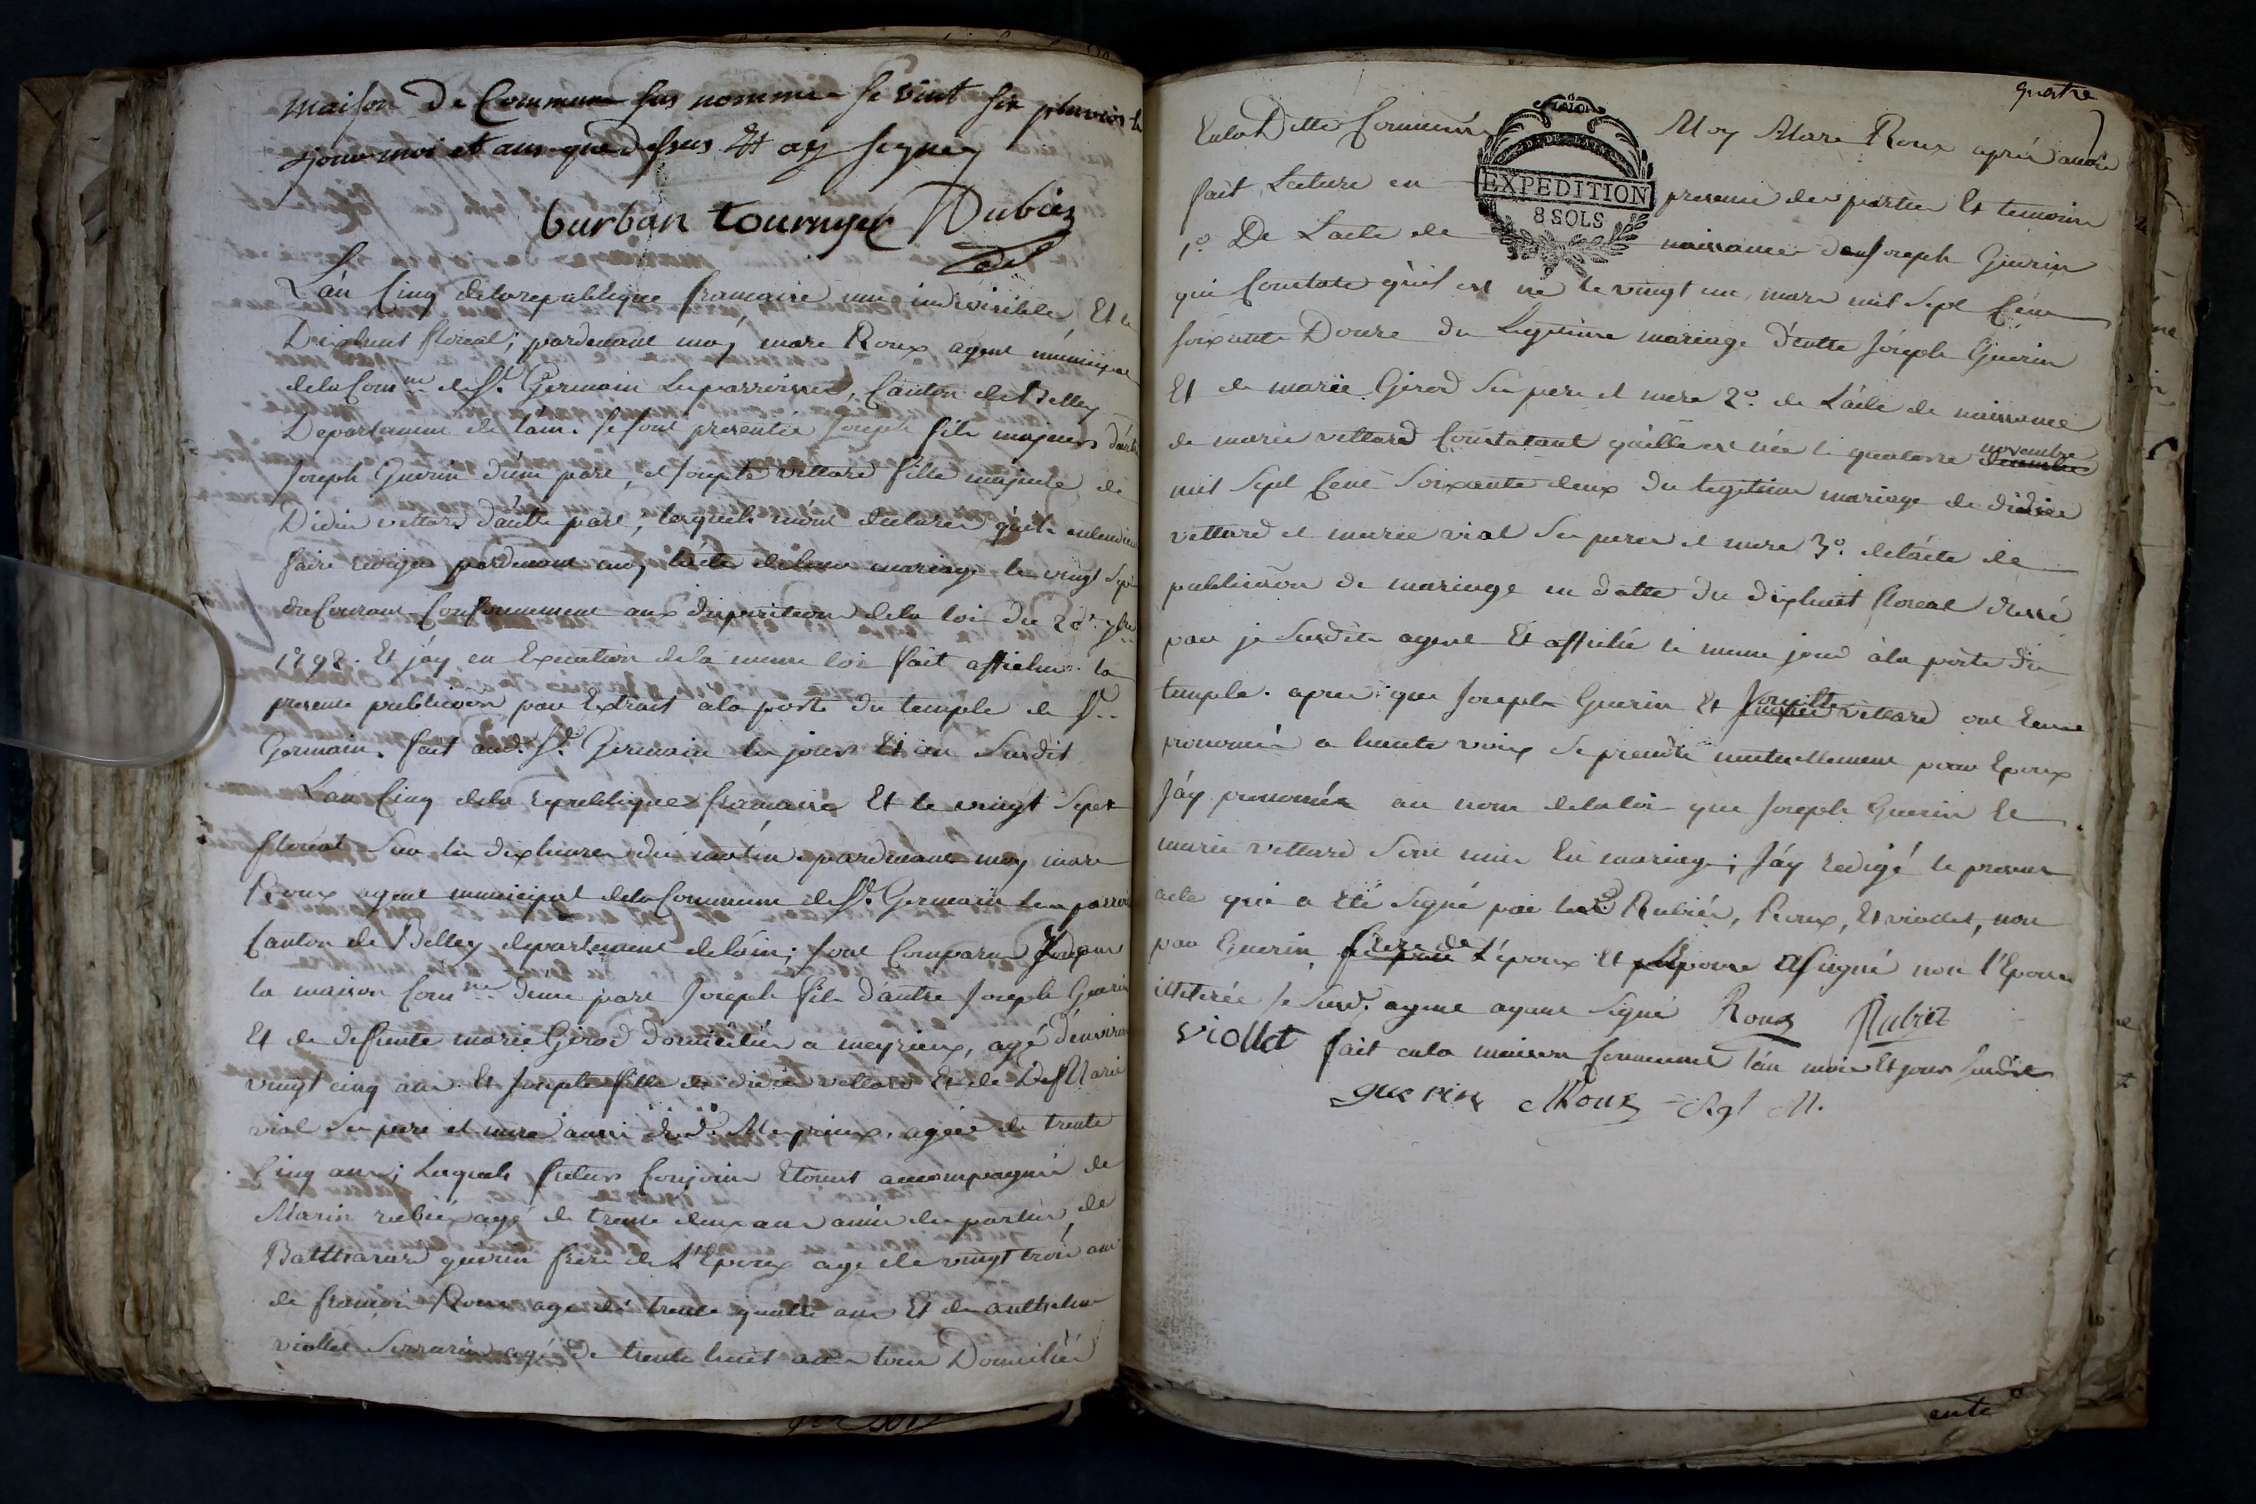 maison De Commune sus nommee le vint six pluvios le
jour moi et ans que dessus Et ay signey
burban tournyer Dubiez
L'an Cinq delarepublique française une indivisible, Et le
Dixhuit floreal, pardevant moy marc Roux agent municipal
delaComne de St. Germain Lesparroisses, Canton de Belley
Departement de lain. se sont presentés Joseph fils majeur d'autre
Joseph Guerin d'une part, et Josepte vettard fille majeure de
Didier vettard d'autre part, lesquels m'ont declarer qu'ils entendent
faire rediger pardevant moy l'acte deleur mariage le vingt sept
du Courant Conformement aux disposition dela loi du 20e. 7bre
1792. Et j'ay en Execution dela meme loi fait afficher la
presente publication par Extrait ala porte du temple de St.
Germain. fait aud. St. Germain les jours Et an Susdit
L'an Cinq dela republique française Et le vingt Sept
floreal Sur les dixheures du matin pardevant moy marc
Roux agent municipal delaCommune de St. Germain les parrois
Canton de Belley departement delain; sont Comparu dans
la maison Comne d'une part Joseph fils d'autre Joseph Guerin
Et de defunte marie Girod domicilié a meyrieux, agé d'environ
vingt cinq ans. Et Josepte fille de didier vettard Et de Def Marie
vial Ses pere et mere aussi dud. Meyrieux, agée de trente
Cinq ans; Lesquels futurs Conjoins Etoient accompagnés de
Marin rubiez agé de trente deux ans amis des parties, de
Balthazard guerin frere de L'Epoux agé de vingt trois ans
de françois Roux agé de trente quatre ans Et de anthelme
viollet Serrurier agé de trente huit ans tous Domiciliés
quatre
Enla Ditte Commune Moy Marc Roux aprés avoir
TALON
EXPEDITION
8 SOLS
fait Lecture en presence des parties Et temoins
1o. De L'acte de naissance de Joseph Guerin
qui Constate qu'il est né le vingt un, mars mil Sept Cent
soixante Douze du Legitime mariage d'autre Joseph Guerin
Et de marie Girod Ses pere et mere 2o. de L'acte de naissance
de marie vettard Constatant qu'elle est née le quatorze decembre novembre
mil Sept Cent Soixante deux du legitime mariage de didier
vettard et marie vial Ses peres et mere 3o. delacte de
publication de mariage en datte du dixhuit floreal dressé
par je Susdit agent Et affiché le meme jour àla porte du
temple. apres que Joseph Guerin Et Josepte vettard ont Eux
prononcés a haute voix Se prendre mutuellement pour Epoux
J'ay prononcés au nom delaloi que Joseph Guerin Et
marie vettard Sont unis En mariage; J'ay redigé le present
acte qui a Eté Signé par les Rubiéz, Roux, Et viollet, non
par Guerin frere de L'époux Et L'Epoux a Signé non l'Epouse
illiterée le Susd. agent ayant Signé Roux Rubiez
viollet fait enla maison Commune l'an mois Et jour Susdit
guerin MRoux Agt M.
ente